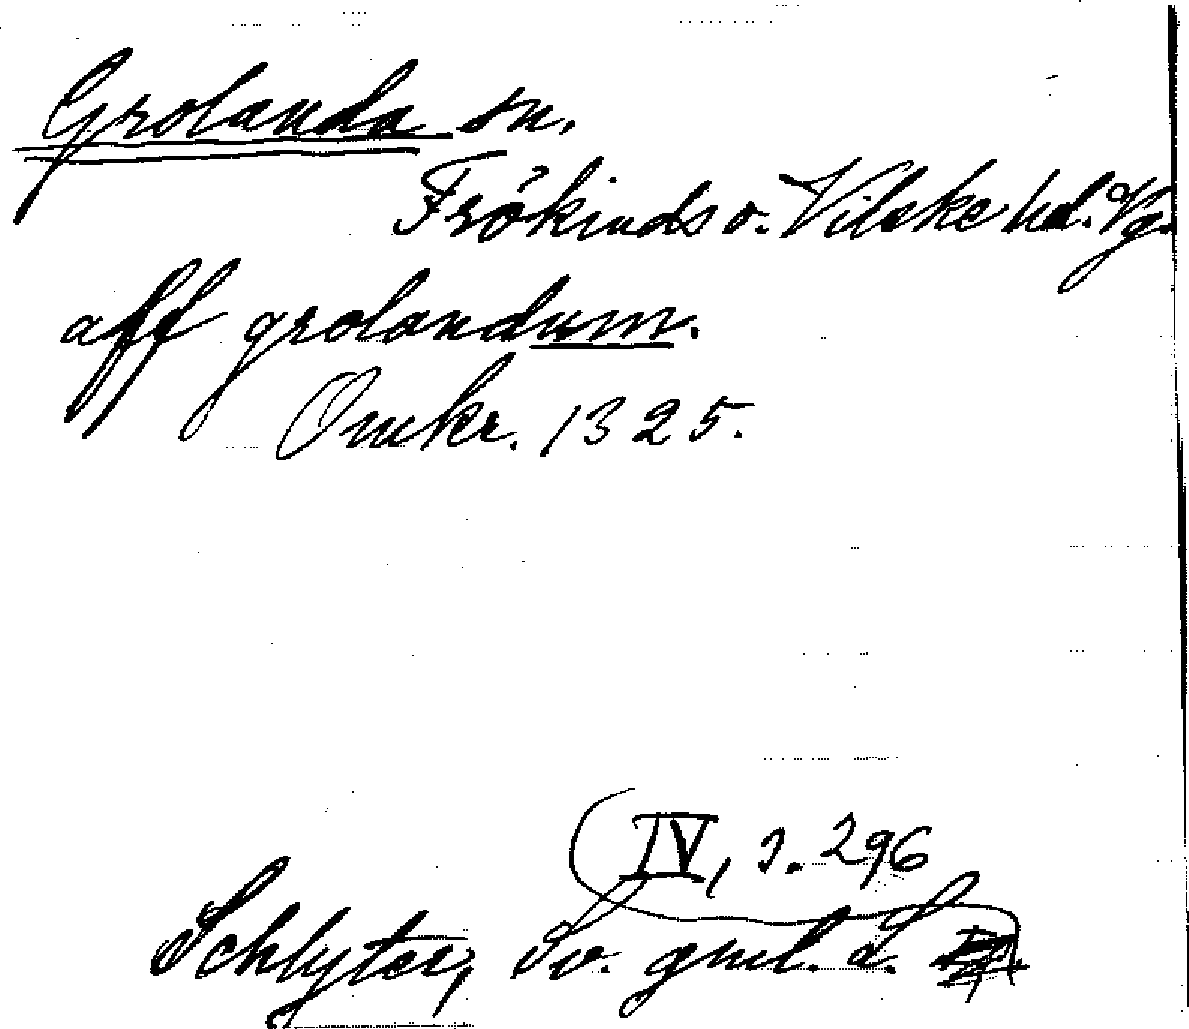 Grolanda sn.
Frökinds o. Vilske hd. Vg.
aff grolandum.
Omkr. 1325.
IV, s. 296
Schlyter, Sv. gml. L.